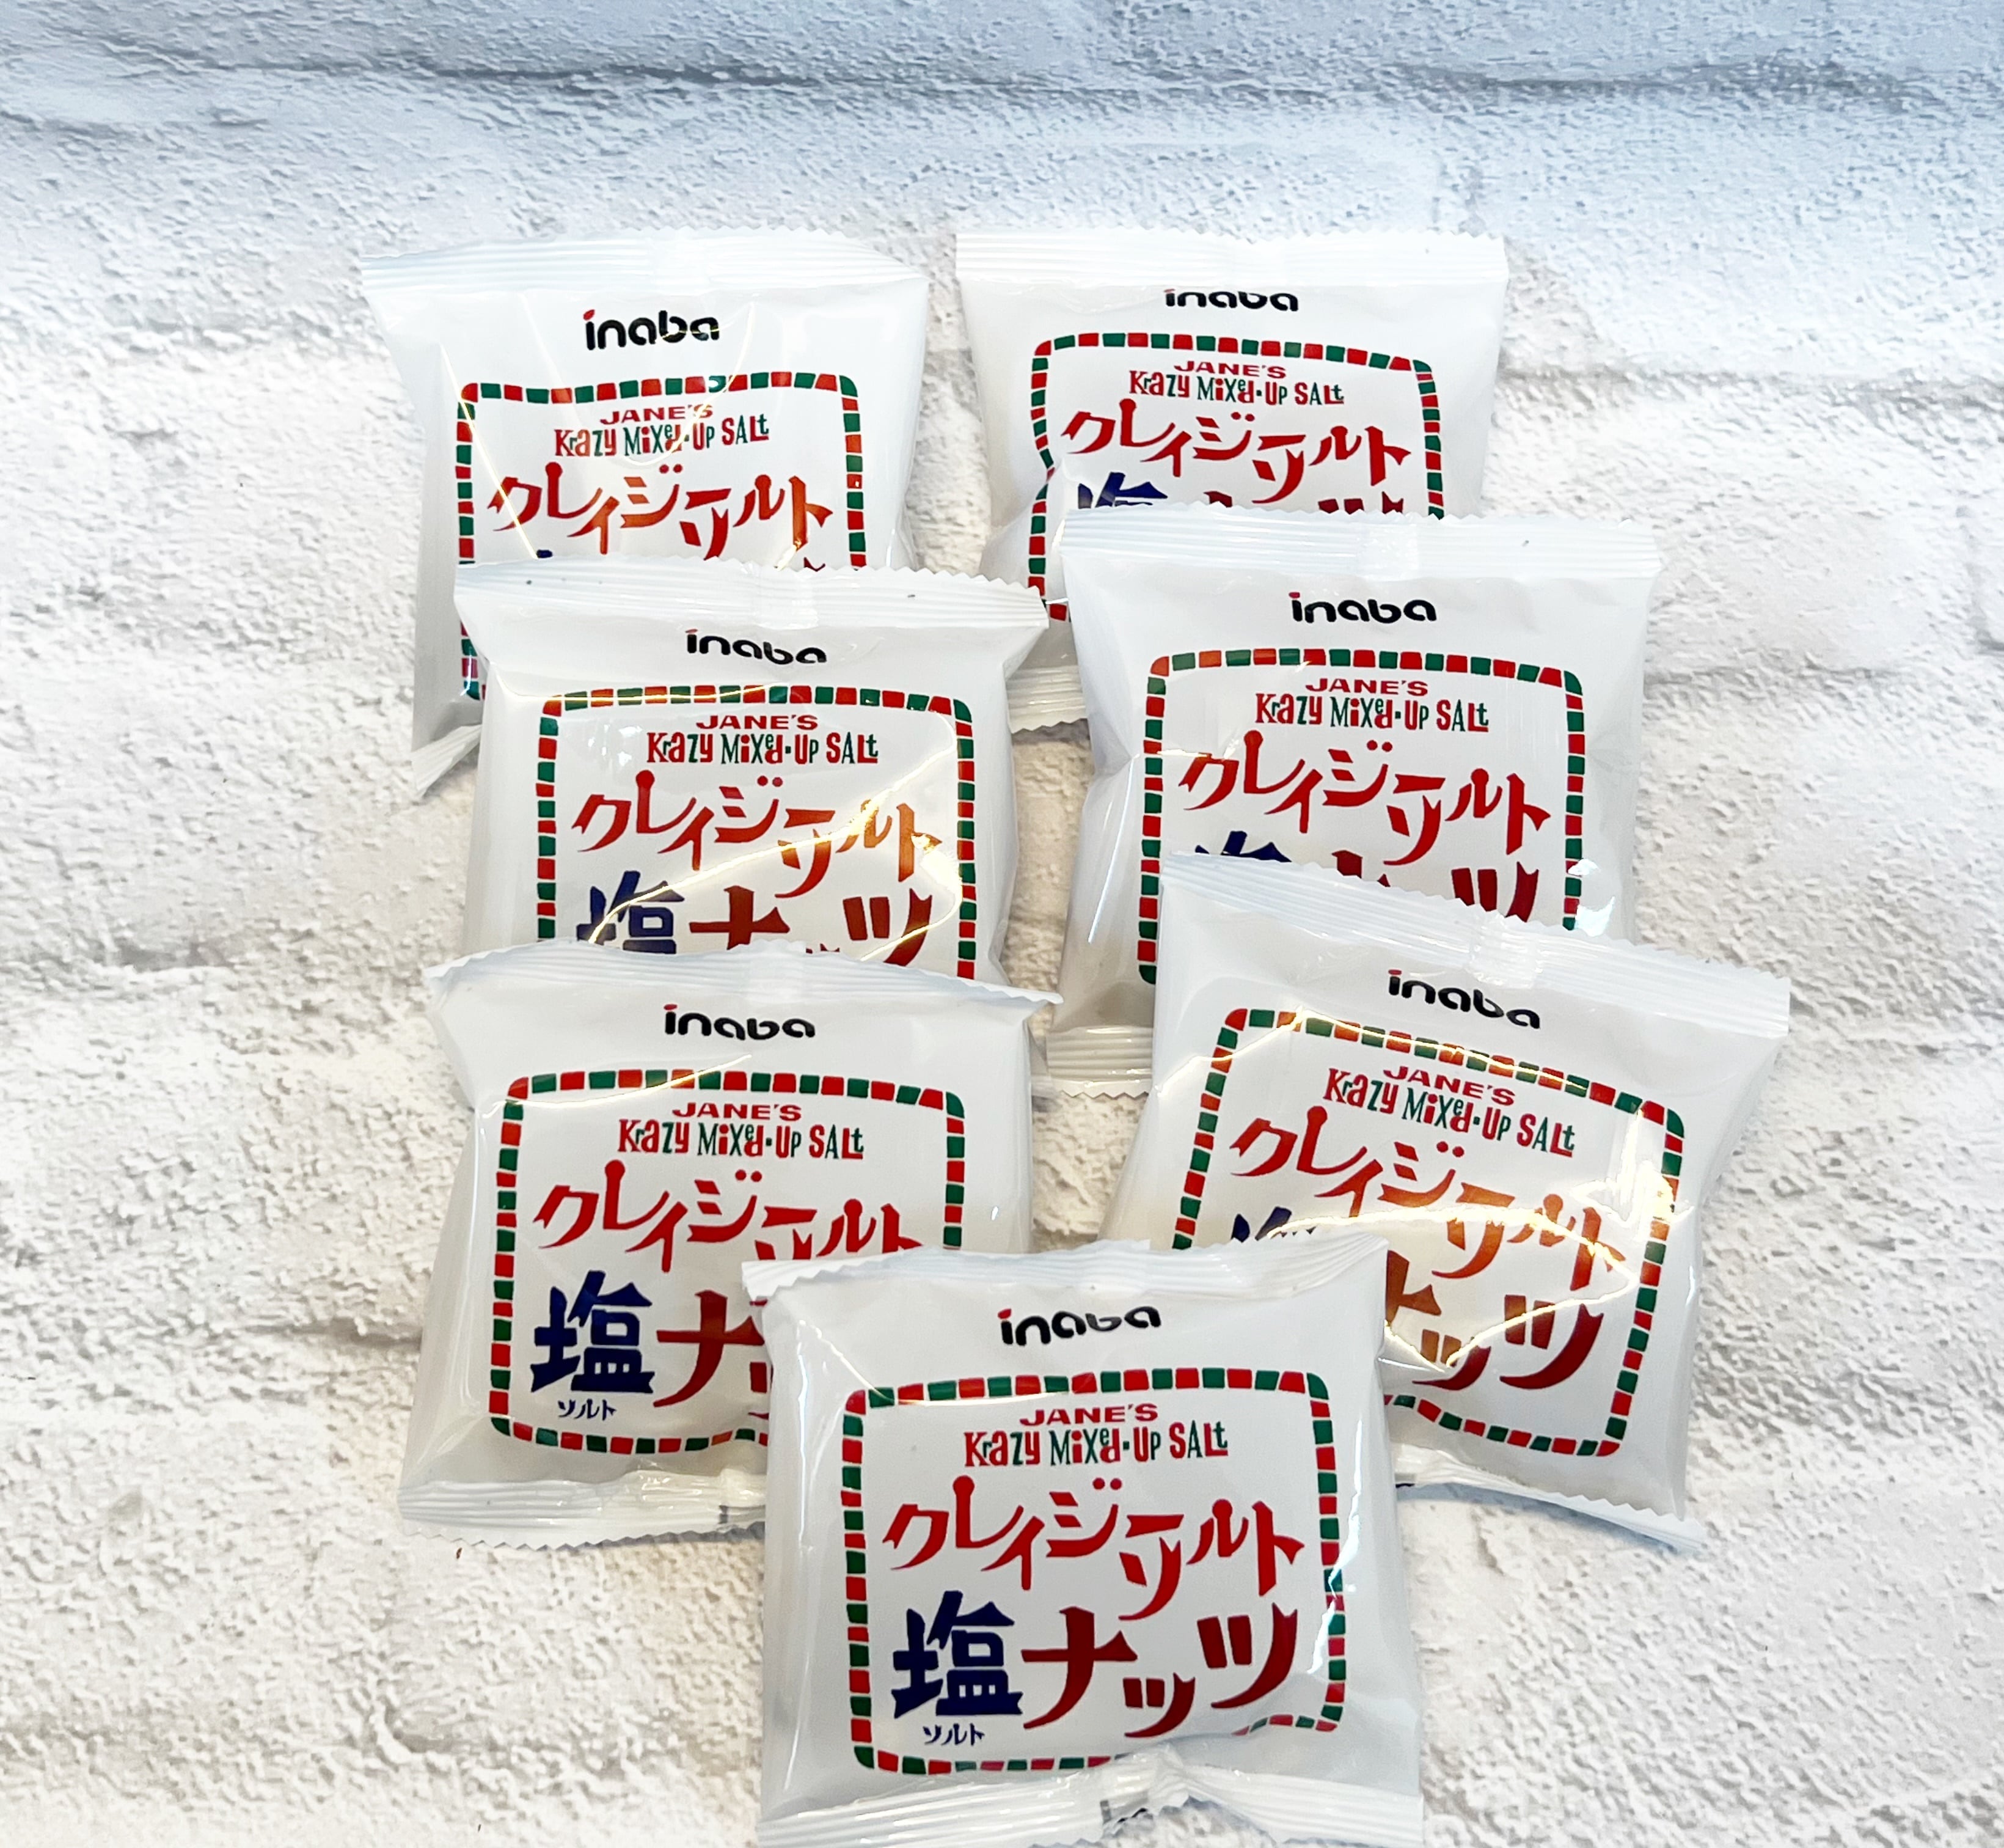 inaba
JANE'S
Krazy Mixed-Up SALt
クレイジーソルト
inaba
JANE'S
Krazy Mixed-Up SALt
クレイジーソルト
塩
inaba
JANE'S
Krazy Mixed-Up SALt
クレイジーソルト
塩ナッツ
inaba
JANE'S
Krazy Mixed-Up SALt
クレイジーソルト
塩ナッツ
inaba
JANE'S
Krazy Mixed-Up SALt
クレイジーソルト
塩ナ
ソルト
inaba
JANE'S
Krazy Mixed-Up SALt
クレイジーソルト
塩ナッツ
inaba
JANE'S
Krazy Mixed-Up SALt
クレイジーソルト
塩ナッツ
ソルト